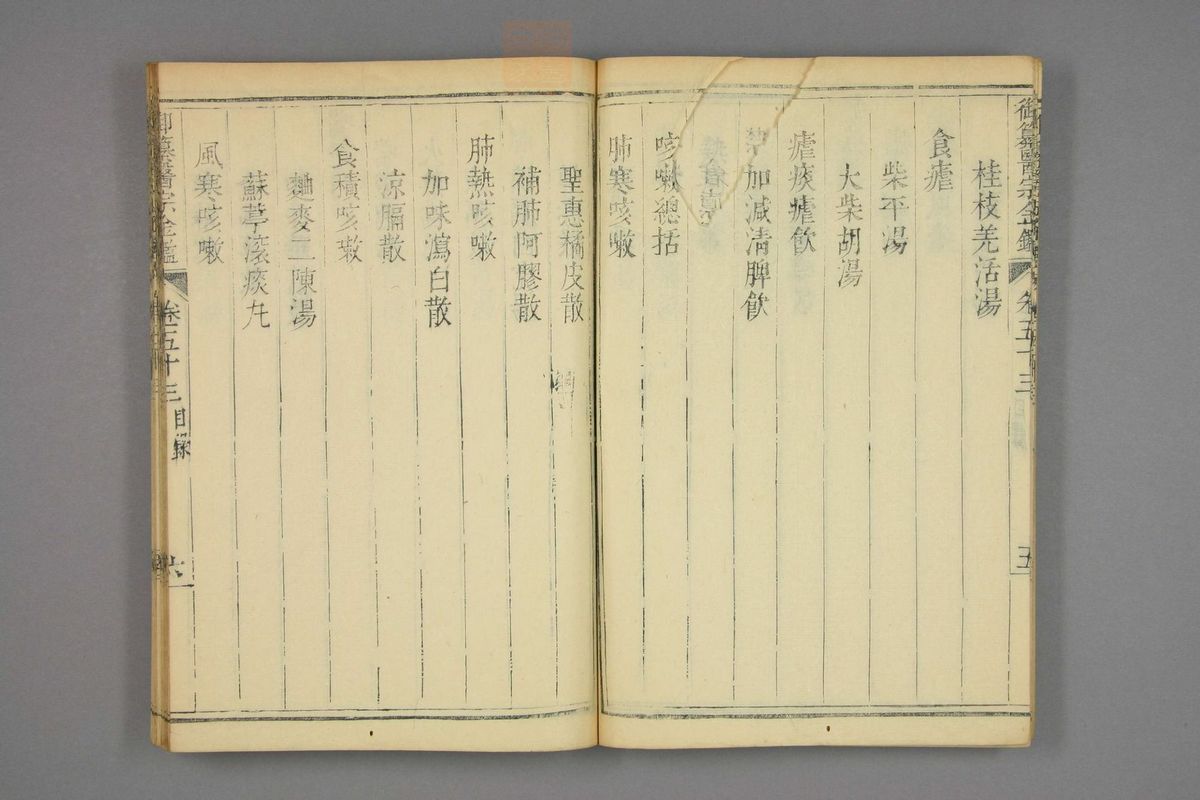 御纂醫宗金鑑 卷五十三 五
桂枝羌活湯
食瘧
柴平湯
大柴胡湯
瘧痰瘧飲
加減清脾飲
咳嗽總括
肺寒咳嗽
聖惠橘皮散
補肺阿膠散
肺熱咳嗽
加味瀉白散
涼膈散
食積咳嗽
麯麥二陳湯
蘇葶滾痰丸
風寒咳嗽
御纂醫宗金鑑 卷五十三 目錄 六